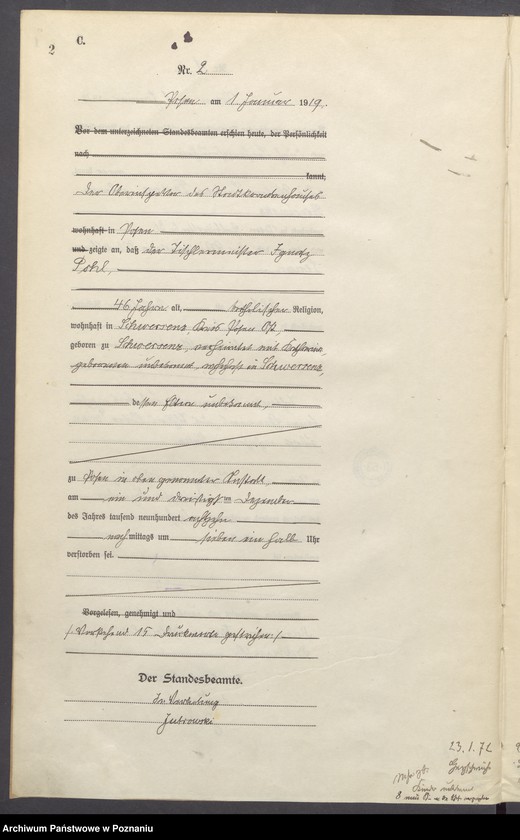 2
C.
Nr. 2
Posen am 1 Januar 1919.
Vor dem unterzeichneten Standesbeamten erschien heute, der Persönlichkeit
nach
kannt,
der Oberinspektor des Stadtkrankenhauses
wohnhaft in Posen
und zeigte an, daß der Tischlermeister Ignatz
46 Jahre alt, katholischer Religion,
wohnhaft in Schwersenz, Kreis Posen Ost,
geboren zu Schwersenz, verheiratet mit
geborenen unbekannt, wohnhaft in Schwersenz,
dessen Eltern unbekannt,
zu Posen in oben genannter Anstalt
am ein und dreißigsten Dezember
des Jahres tausend neunhundert achtzehn
nachmittags um sieben ein halb Uhr
verstorben sei.
Vorgelesen, genehmigt und
/: Vorstehend 15 Druckworte gestrichen :/
Der Standesbeamte.
In Vertretung
23.1.72
Archiwum Państwowe w Poznaniu